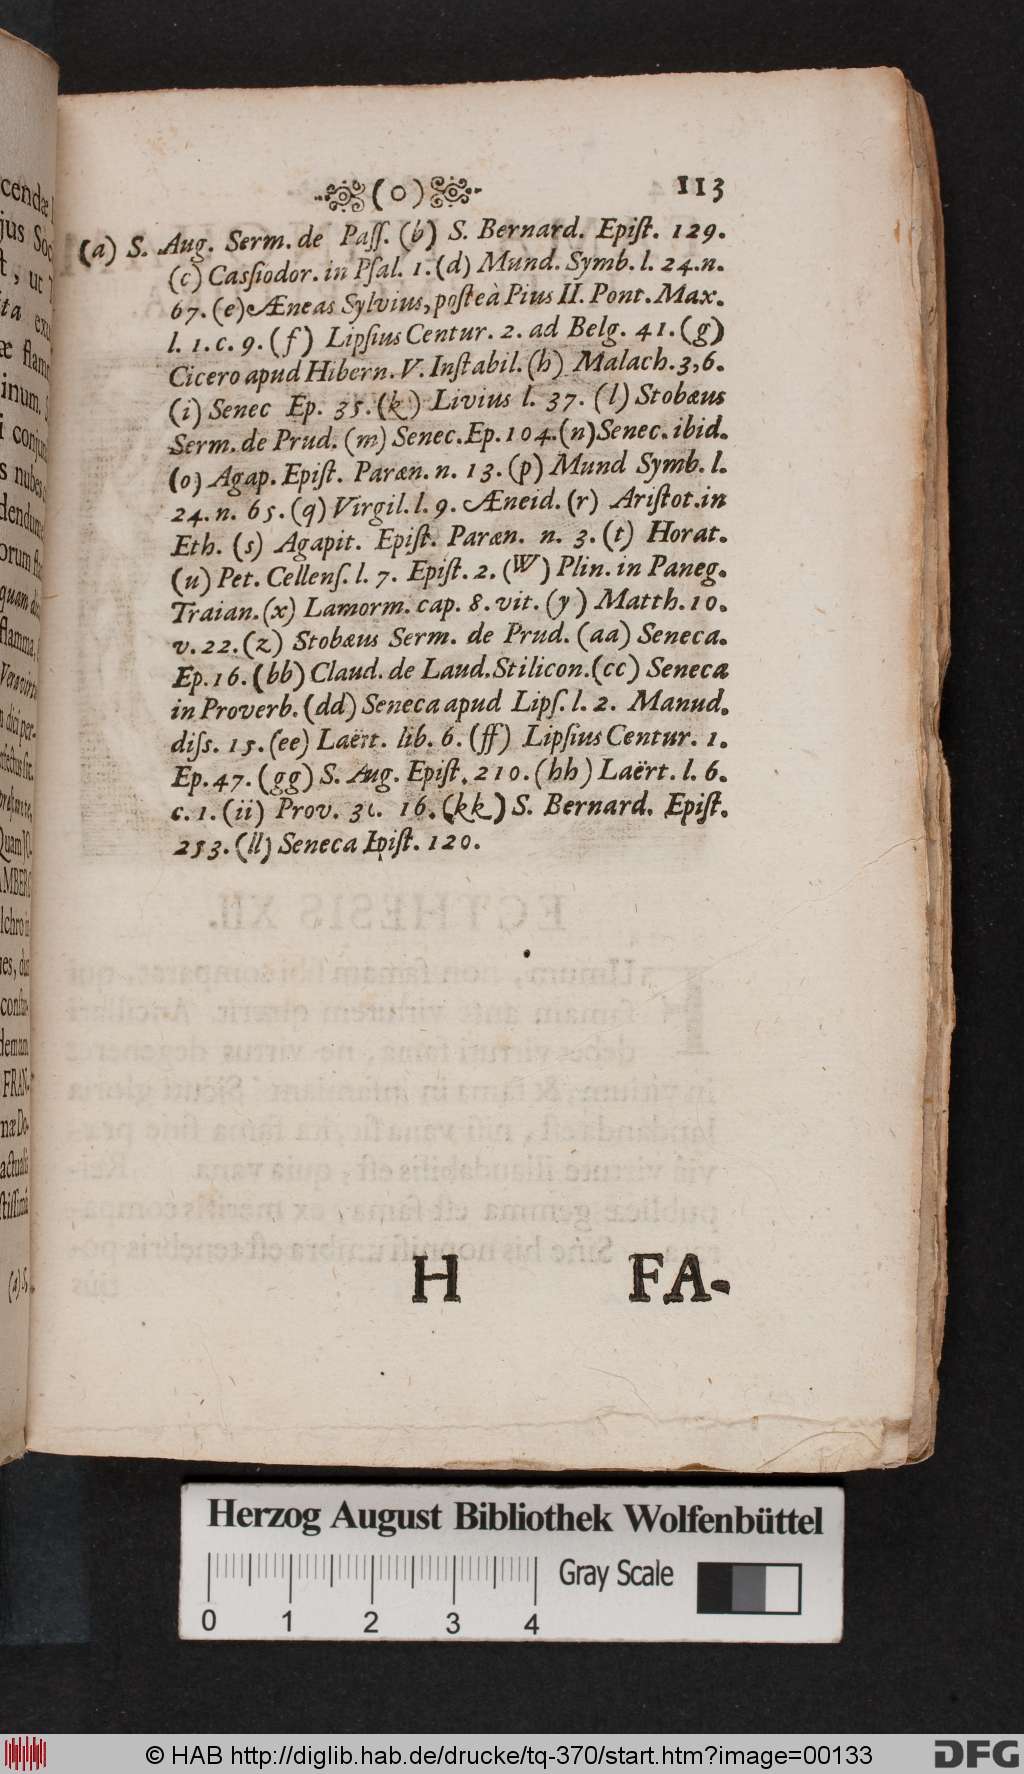 (o) 113
(a) S. Aug. Serm. de Paſſ. (b) S. Bernard. Epiſt. 129.
(c) Caſſiodor. in Pſal. 1. (d) Mund. Symb. l. 24. n.
67. (e) Æneas Sylvius, poſteà Pius II. Pont. Max.
l. 1. c. 9. (f) Lipſius Centur. 2. ad Belg. 41. (g)
Cicero apud Hibern. V. Inſtabil. (h) Malach. 3, 6.
(i) Senec Ep. 35. (k) Livius l. 37. (l) Stobæus
Serm. de Prud. (m) Senec. Ep. 104. (n) Senec. ibid.
(o) Agap. Epiſt. Paræn. n. 13. (p) Mund Symb. l.
24. n. 65. (q) Virgil. l. 9. Æneid. (r) Ariſtot. in
Eth. (s) Agapit. Epiſt. Paræn. n. 3. (t) Horat.
(u) Pet. Cellenſ. l. 7. Epiſt. 2. (W) Plin. in Paneg.
Traian. (x) Lamorm. cap. 8. vit. (y) Matth. 10.
v. 22. (z) Stobæus Serm. de Prud. (aa) Seneca.
Ep. 16. (bb) Claud. de Laud. Stilicon. (cc) Seneca
in Proverb. (dd) Seneca apud Lipſ. l. 2. Manud.
diſs. 15. (ee) Laërt. lib. 6. (ff) Lipſius Centur. 1.
Ep. 47. (gg) S. Aug. Epiſt. 210. (hh) Laërt. l. 6.
c. 1. (ii) Prov. 16. (kk) S. Bernard. Epiſt.
253. (ll) Seneca Epiſt. 120.
H FA-
Herzog August Bibliothek Wolfenbüttel
Gray Scale
0 1 2 3 4
© HAB http://diglib.hab.de/drucke/tq-370/start.htm?image=00133
DFG